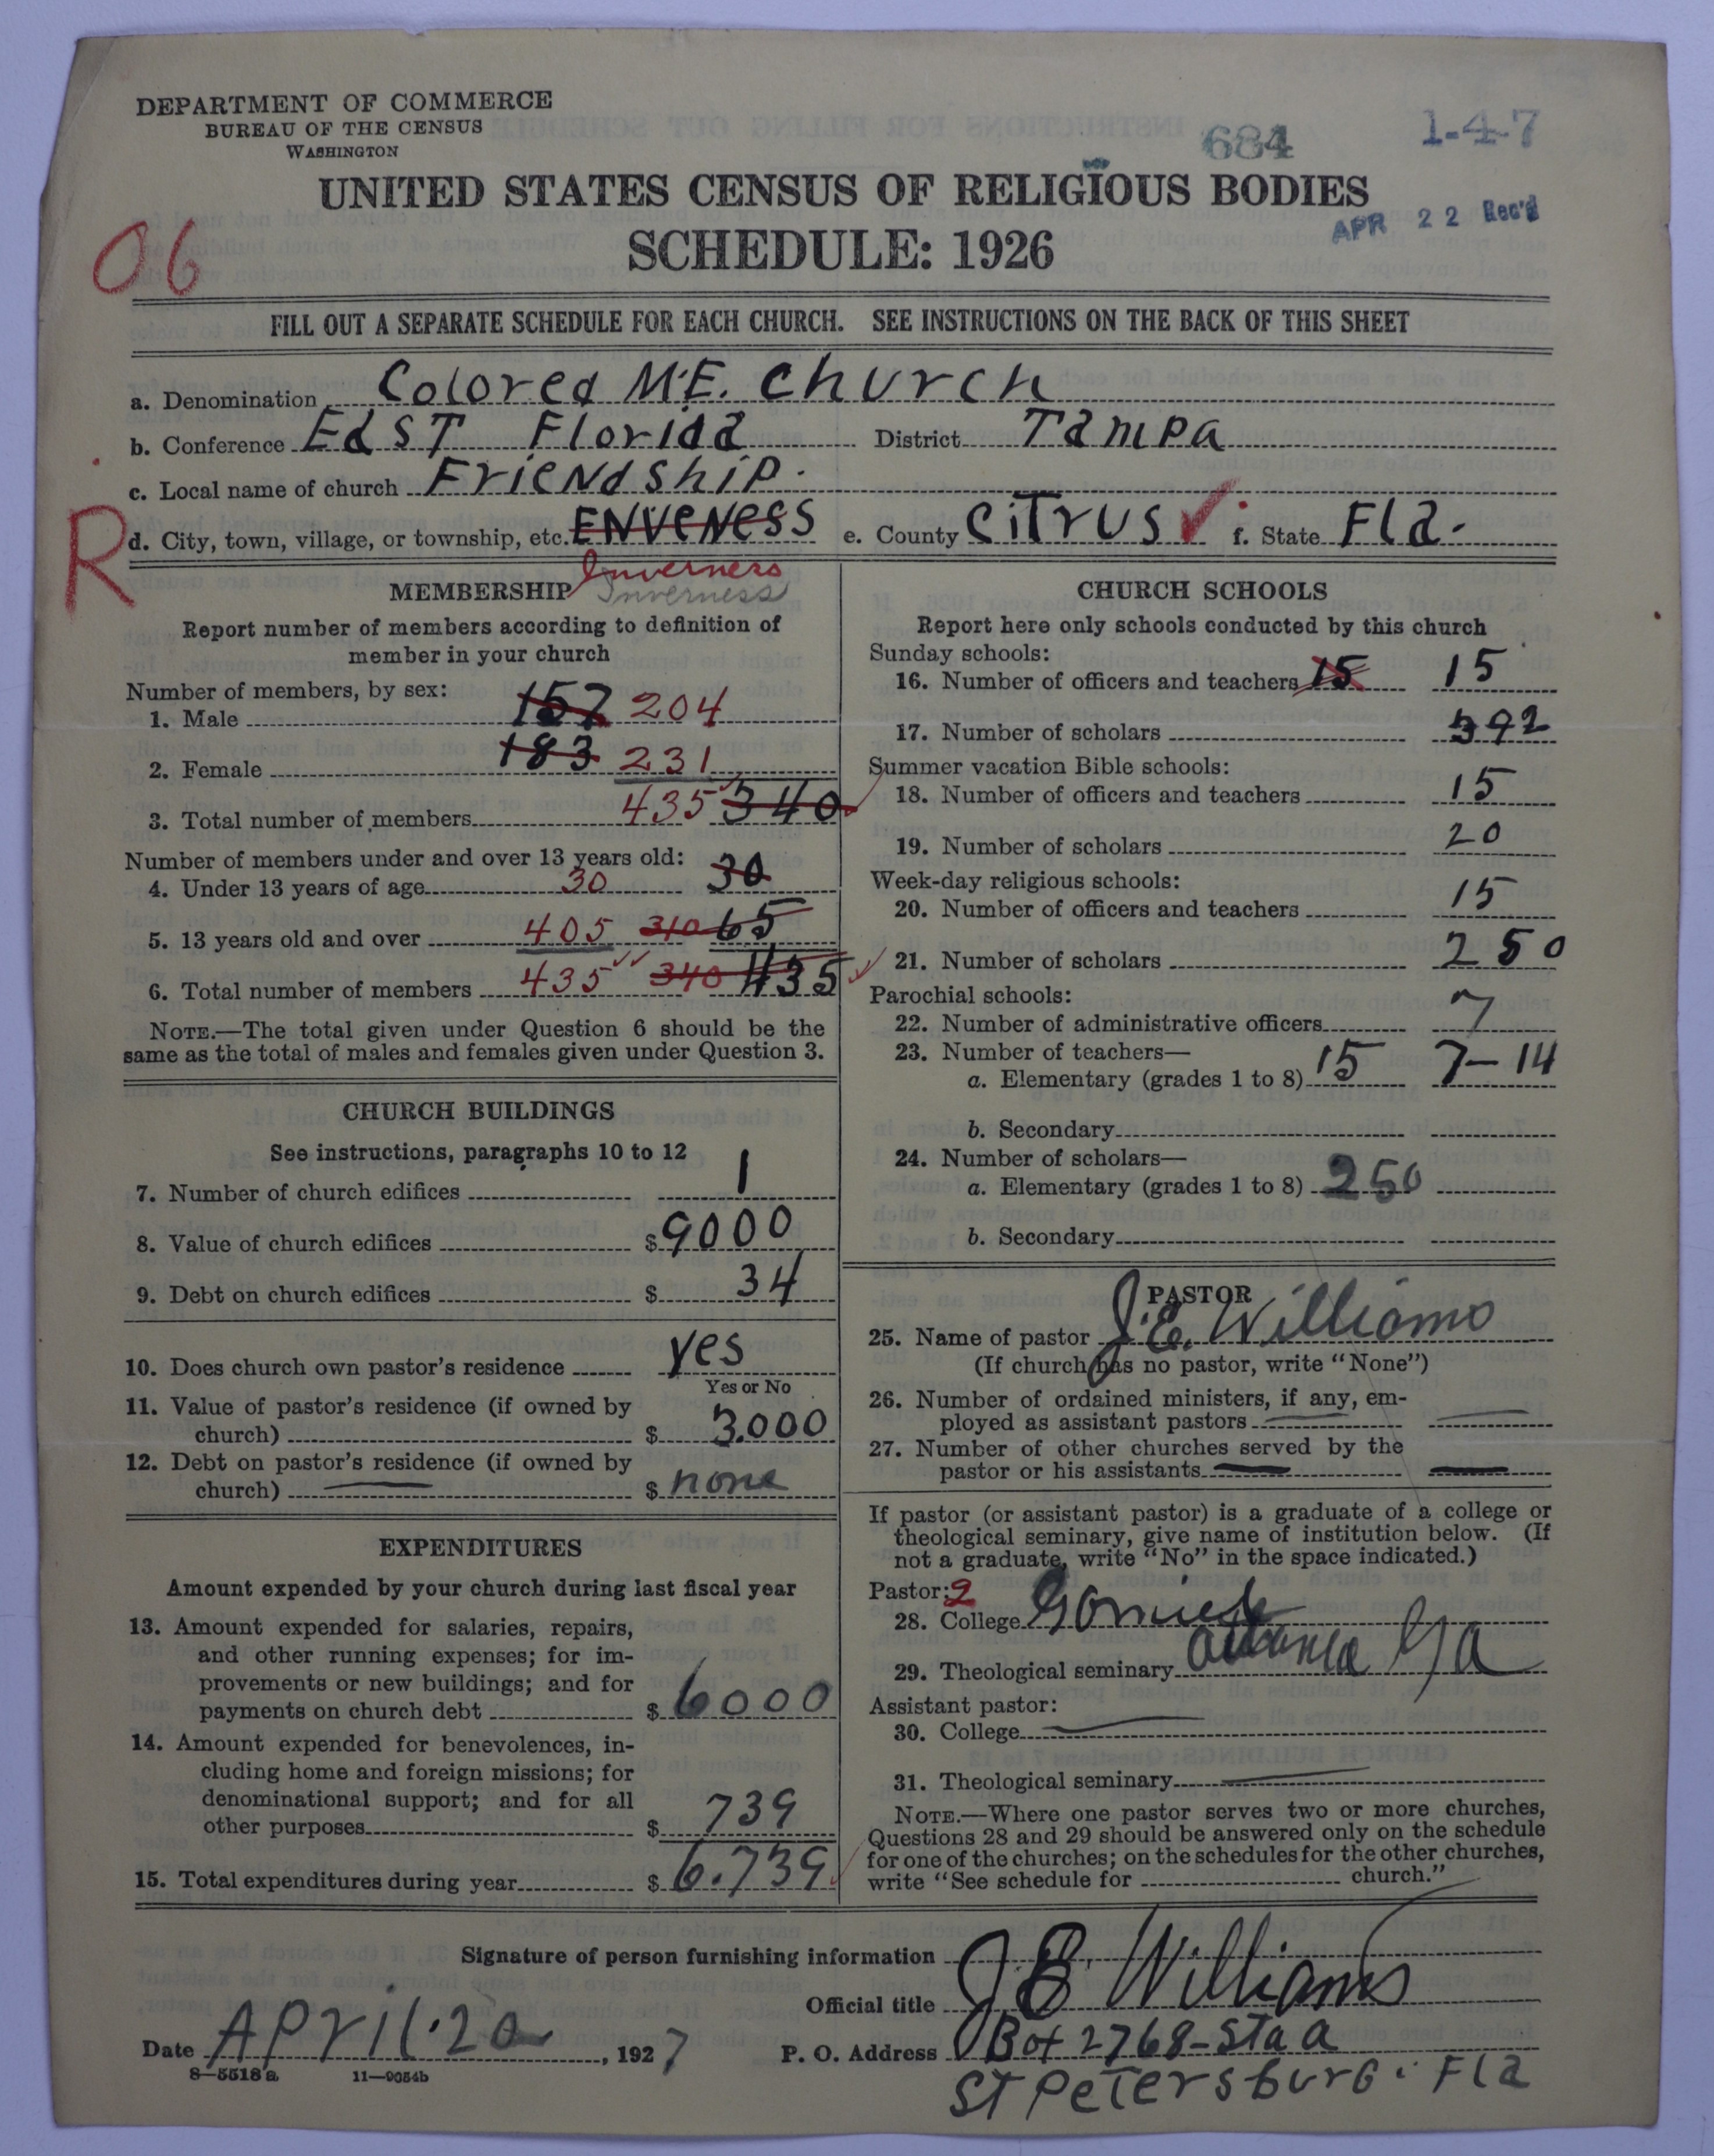 DEPARTMENT OF COMMERCE
BUREAU OF THE CENSUS
WASHINGTON
684
1-4-7
UNITED STATES CENSUS OF RELIGIOUS BODIES
APR 22 Rec'd
SCHEDULE: 1926
06
FILL OUT A SEPARATE SCHEDULE FOR EACH CHURCH. SEE INSTRUCTIONS ON THE BACK OF THIS SHEET
a. Denomination Colored M.E. Church
b. Conference East Florida District Tampa
c. Local name of church Friendship.
R
d. City, town, village, or township, etc. ENVENESS e. County Citrus ✓ f. State Fla.
Inverness
Inverness
MEMBERSHIP
Report number of members according to definition of
member in your church
Number of members, by sex:
1. Male 157 204
2. Female 183 231
3. Total number of members 435 340
Number of members under and over 13 years old:
4. Under 13 years of age 30 30
5. 13 years old and over 405 310 65
6. Total number of members 435 340 435
NOTE.—The total given under Question 6 should be the
same as the total of males and females given under Question 3.
CHURCH BUILDINGS
See instructions, paragraphs 10 to 12
7. Number of church edifices 1
8. Value of church edifices $ 9000
9. Debt on church edifices $ 34
10. Does church own pastor's residence yes
Yes or No
11. Value of pastor's residence (if owned by
church) $ 3.000
12. Debt on pastor's residence (if owned by
church) $ none
EXPENDITURES
Amount expended by your church during last fiscal year
13. Amount expended for salaries, repairs,
and other running expenses; for im-
provements or new buildings; and for
payments on church debt $ 6000
14. Amount expended for benevolences, in-
cluding home and foreign missions; for
denominational support; and for all
other purposes $ 739
15. Total expenditures during year $ 6.739
CHURCH SCHOOLS
Report here only schools conducted by this church
Sunday schools:
16. Number of officers and teachers 15 15
17. Number of scholars 392
Summer vacation Bible schools:
18. Number of officers and teachers 15
19. Number of scholars 20
Week-day religious schools:
20. Number of officers and teachers 15
21. Number of scholars 250
Parochial schools:
22. Number of administrative officers 7
23. Number of teachers—
a. Elementary (grades 1 to 8) 15 7-14
b. Secondary
24. Number of scholars—
a. Elementary (grades 1 to 8) 250
b. Secondary
PASTOR
25. Name of pastor J.E. Williams
(If church has no pastor, write "None")
26. Number of ordained ministers, if any, em-
ployed as assistant pastors
27. Number of other churches served by the
pastor or his assistants
If pastor (or assistant pastor) is a graduate of a college or
theological seminary, give name of institution below. (If
not a graduate, write "No" in the space indicated.)
Pastor: 2
28. College
29. Theological seminary Atlanta Ga
Assistant pastor:
30. College
31. Theological seminary
NOTE.—Where one pastor serves two or more churches,
Questions 28 and 29 should be answered only on the schedule
for one of the churches; on the schedules for the other churches,
write "See schedule for church."
Signature of person furnishing information J E Williams
Official title
Date April. 20, 1927 P. O. Address Box 2768-Sta a
St Petersburg. Fla
8—5518 a 11—9054b